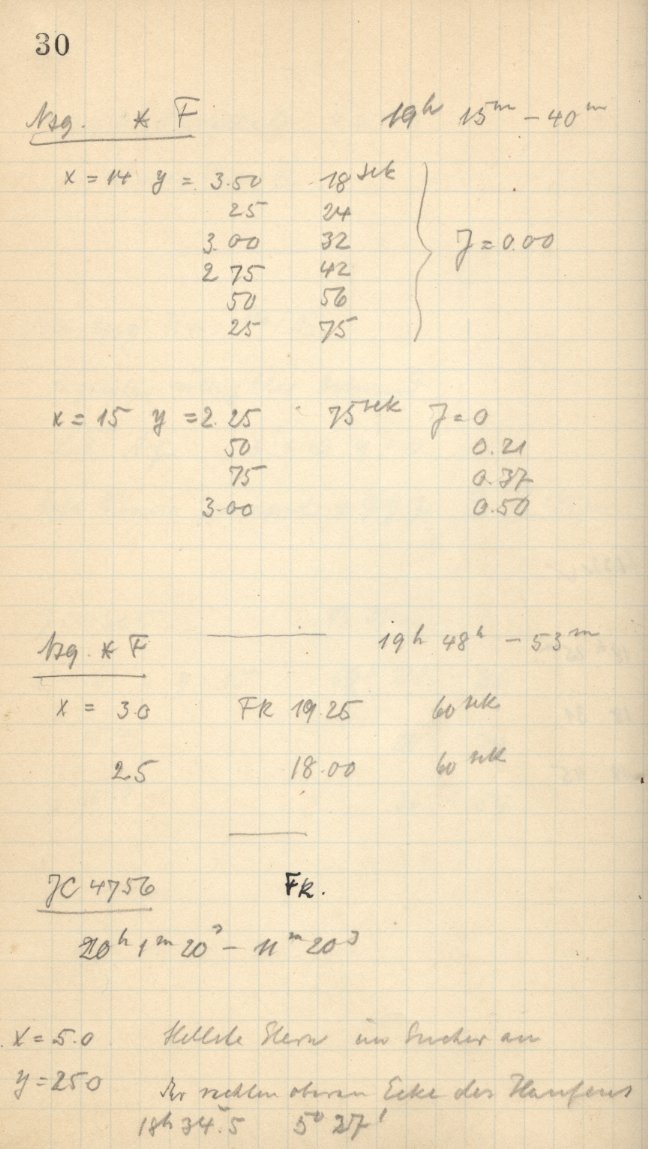 30
Nsg. * F 19h 15m – 40m
x = 14 y = 3.50 18 sek
25 24
3.00 32 J = 0.00
2 75 42
50 56
25 75
x = 15 y = 2.25 75 sek J = 0
50 0.21
75 0.37
3.00 0.50
Nsg. * F 19h 48h – 53m
x = 30 FR 19 25 60 sek
25 18.00 60 sek
JC 4756 FR.
20h 1m 20s – 11m 20s
x = 5.0 Hellste Stern im Sucher an
y = 250 der rechten oberen Ecke des Haufens
18h 34.5 5° 27'